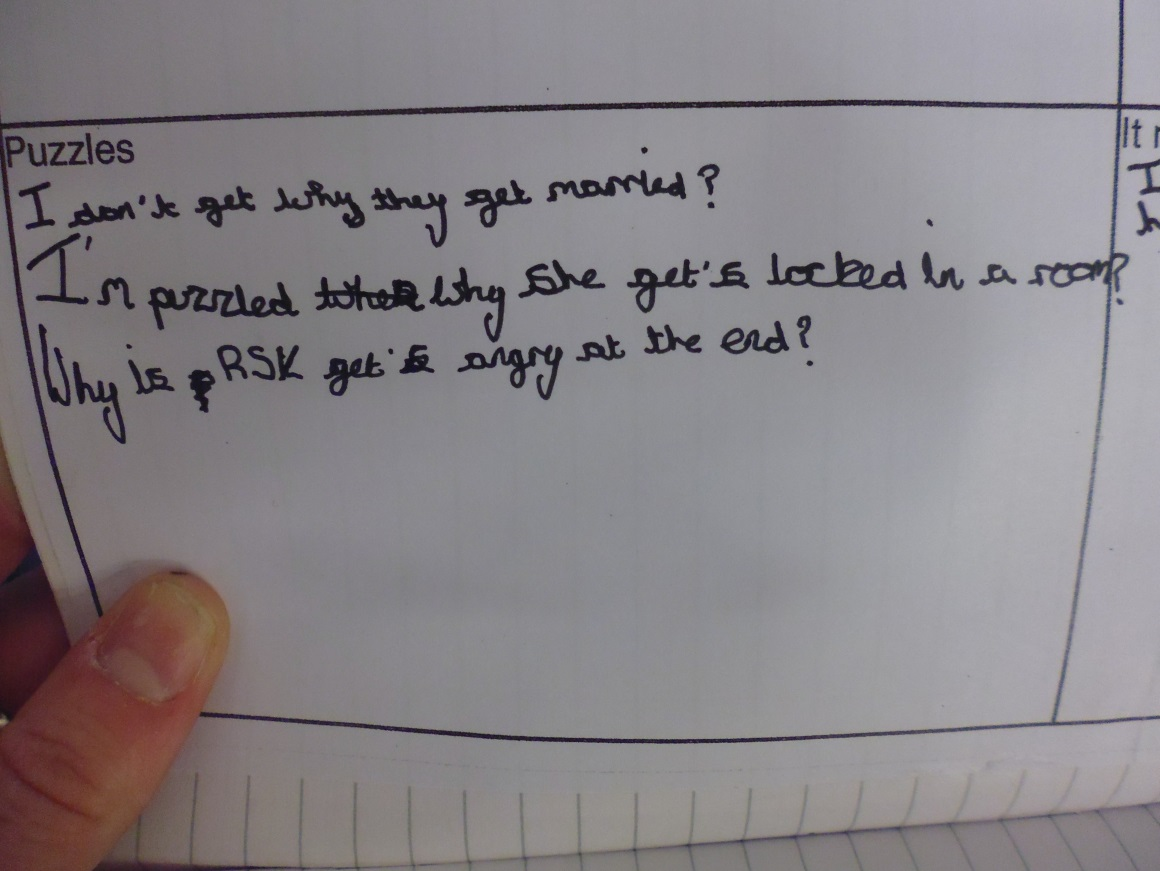 Puzzles
I don't get why they get married?
I'm puzzled why she get's locked in a room?
Why is RSK get's angry at the end?
It
I